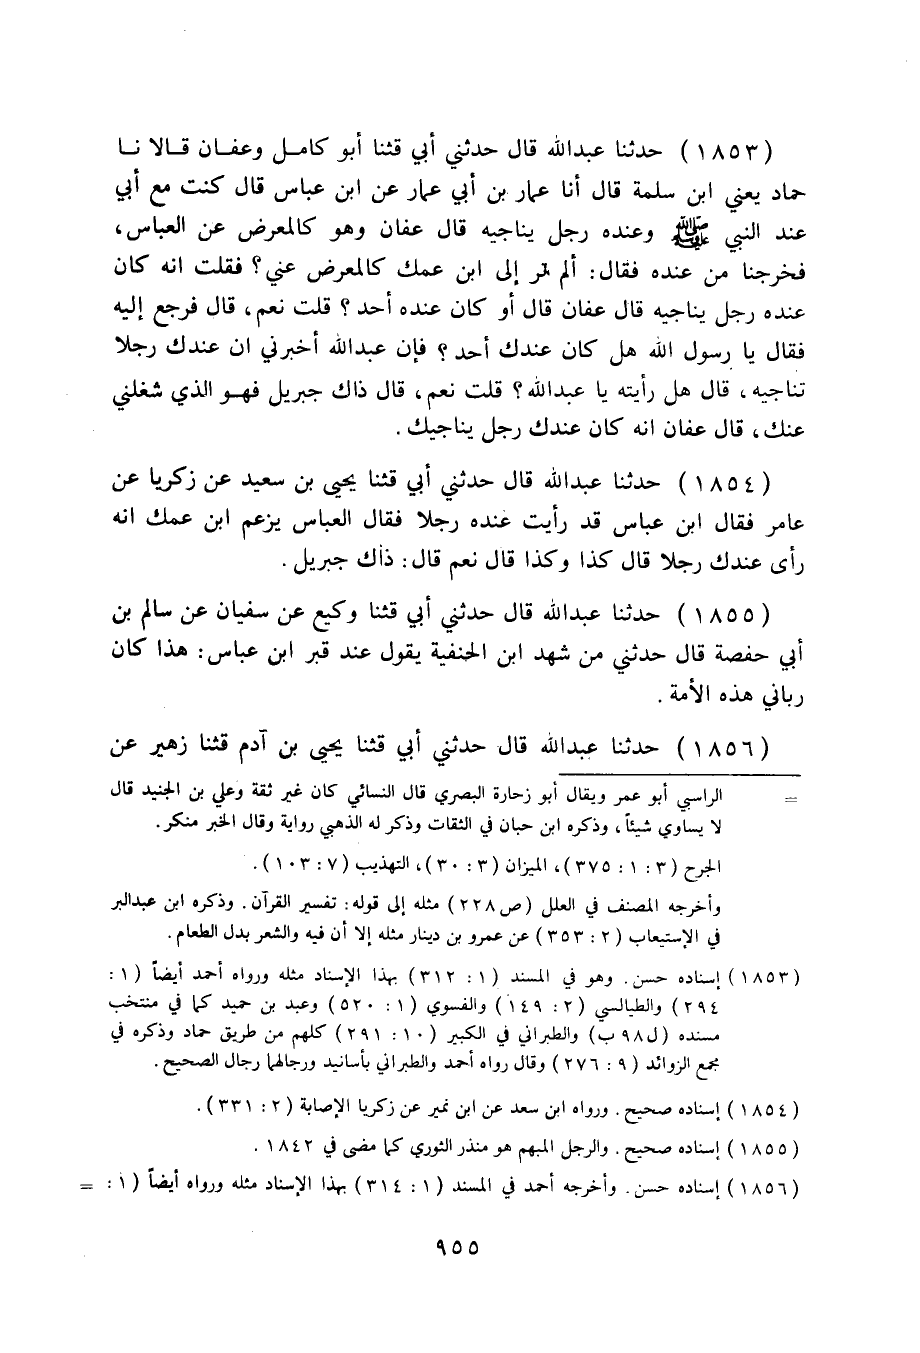 (١٨٥٣) حدثنا عبدالله قال حدثني أبي قثنا أبو كامـل وعفـان قـالا نـا
حماد يعني ابن سلمة قال أنا عمار بن أبي عمار عن ابن عباس قال كنت مع أبي
عند النبي ﷺ وعنده رجل يناجيه قال عفان وهو كالمعرض عن العباس،
فخرجنا من عنده فقال: ألم تر إلى ابن عمك كالمعرض عني؟ فقلت انه كان
عنده رجل يناجيه قال عفان قال أو كان عنده أحد؟ قلت نعم، قال فرجع إليه
فقال يا رسول الله هل كان عندك أحد؟ فإن عبدالله أخبرني ان عندك رجلا
تناجيه، قال هل رأيته يا عبدالله؟ قلت نعم، قال ذاك جبريل فهـو الذي شغلني
عنك، قال عفان انه كان عندك رجل يناجيك.
(١٨٥٤) حدثنا عبدالله قال حدثني أبي قثنا يحيى بن سعيد عن زكريا عن
عامر فقال ابن عباس قد رأيت عنده رجلا فقال العباس يزعم ابن عمك انه
رأى عندك رجلا قال كذا وكذا قال نعم قال: ذاك جبريل.
(١٨٥٥) حدثنا عبدالله قال حدثني أبي قثنا وكيع عن سفيان عن سالم بن
أبي حفصة قال حدثني من شهد ابن الحنفية يقول عند قبر ابن عباس: هذا كان
رباني هذه الأمة.
(١٨٥٦) حدثنا عبدالله قال حدثني أبي قثنا يحيى بن آدم قثنا زهير عن
= الراسي أبو عمر ويقال أبو زحارة البصري قال النسائي كان غير ثقة وعلي بن الجنيد قال
لا يساوي شيئاً، وذكره ابن حبان في الثقات وذكر له الذهبي رواية وقال الخبر منكر.
الجرح (٣: ١: ٣٧٥)، الميزان (٣: ٣٠)، التهذيب (٧: ١٠٣).
وأخرجه المصنف في العلل (ص ٢٢٨) مثله إلى قوله: تفسير القرآن. وذكره ابن عبدالبر
في الإستيعاب (٢: ٣٥٣) عن عمرو بن دينار مثله إلا أن فيه والشعر بدل الطعام.
(١٨٥٣) إسناده حسن. وهو في المسند (١: ٣١٢) بهذا الإسناد مثله ورواه أحمد أيضاً (١:
٢٩٤) والطيالسي (٢: ١٤٩) والفسوي (١: ٥٢٠) وعبد بن حميد كما في منتخب
مسنده (ل ٩٨ ب) والطبراني في الكبير (١٠: ٢٩١) كلهم من طريق حماد وذكره في
مجمع الزوائد (٩: ٢٧٦) وقال رواه أحمد والطبراني بأسانيد ورجالها رجال الصحيح.
(١٨٥٤) إسناده صحيح. ورواه ابن سعد عن ابن نمير عن زكريا الإصابة (٢: ٣٣١).
(١٨٥٥) إسناده صحيح. والرجل المبهم هو منذر الثوري كما مضى في ١٨٤٢.
(١٨٥٦) إسناده حسن. وأخرجه أحمد في المسند (١: ٣١٤) بهذا الإسناد مثله ورواه أيضاً (١: =
٩٥٥